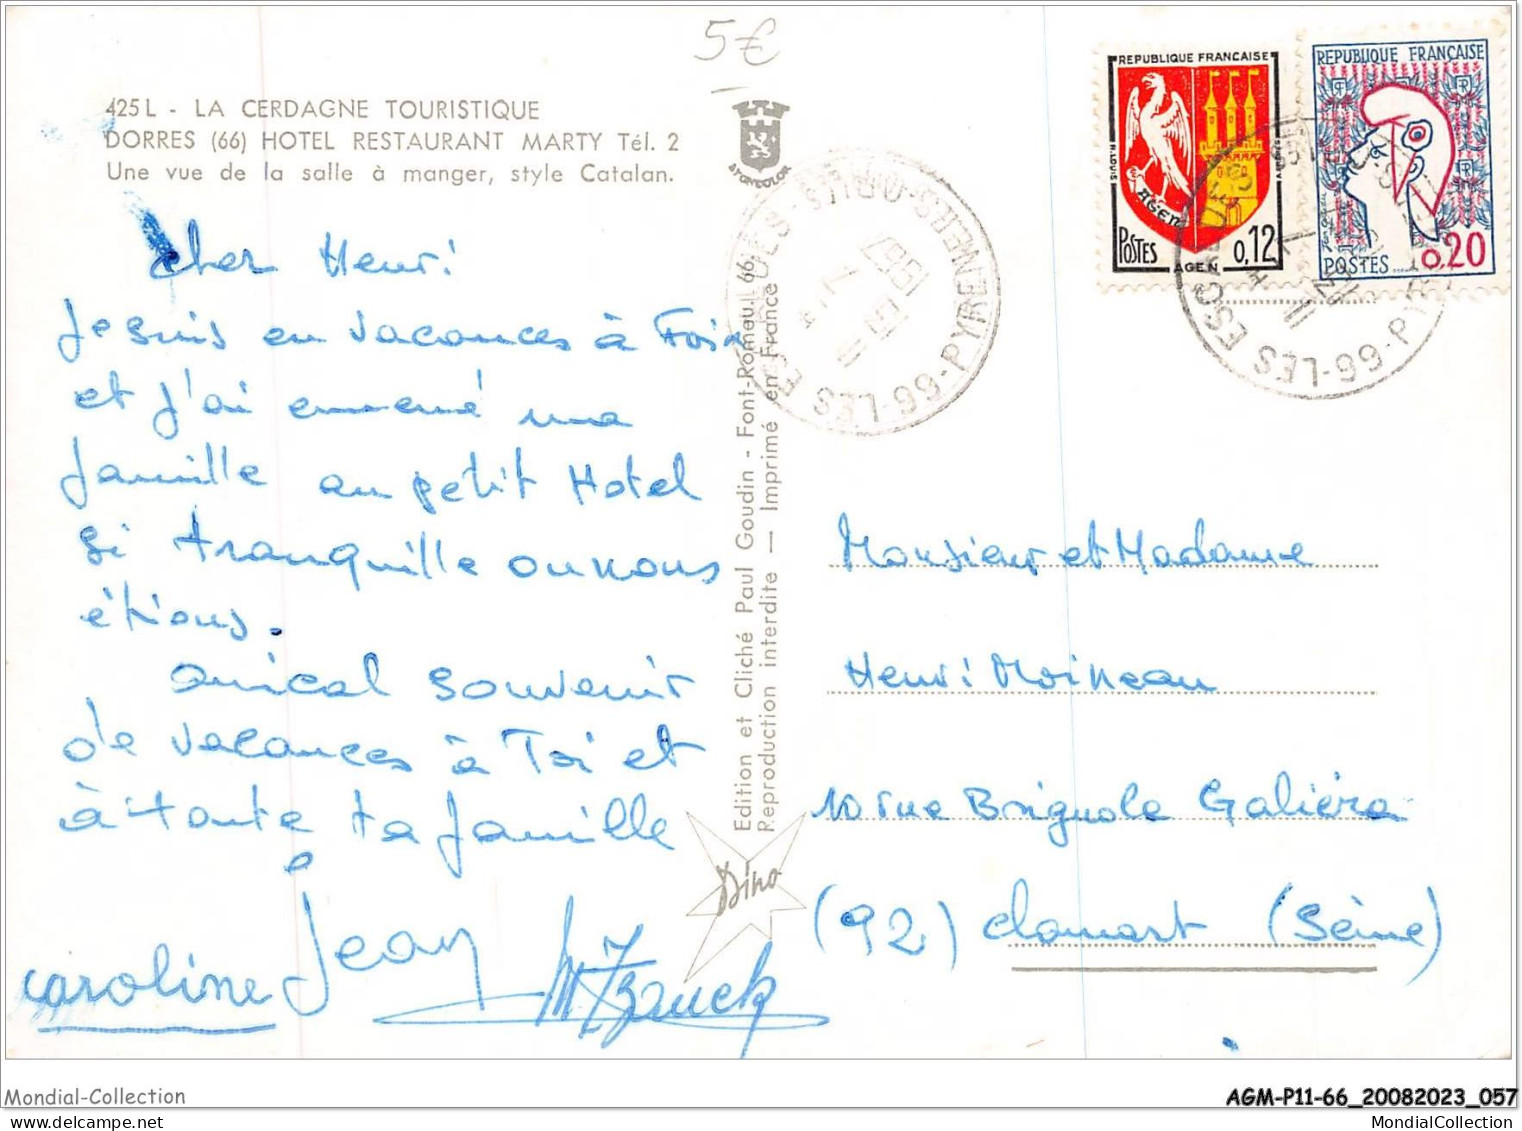 5€
425 L - LA CERDAGNE TOURISTIQUE
DORRES (66) HOTEL RESTAURANT MARTY Tél. 2
Une vue de la salle à manger, style Catalan.
cher Henri
Je suis en vacances à Foix
et j'ai emmené ma
famille au petit Hotel
si tranquille ou nous
étions.
amical souvenir
de vacances à Toi et
à toute ta famille
Jean
caroline
Edition et Cliché Paul Goudin - Font-Romeu 66
Reproduction interdite — Imprimé en France
Dino
66-LES ESCALDES
PYRENEES-ORLES
1967
REPUBLIQUE FRANÇAISE
AGEN
POSTES
0,12
AGEN
REPUBLIQUE FRANÇAISE
POSTES
0,20
66-LES ESCALDES
Monsieur et Madame
Henri Moineau
10 rue Brignole Galiéra
(92) Clamart (Seine)
Mondial-Collection
AGM-P11-66_20082023_057
MondialCollection